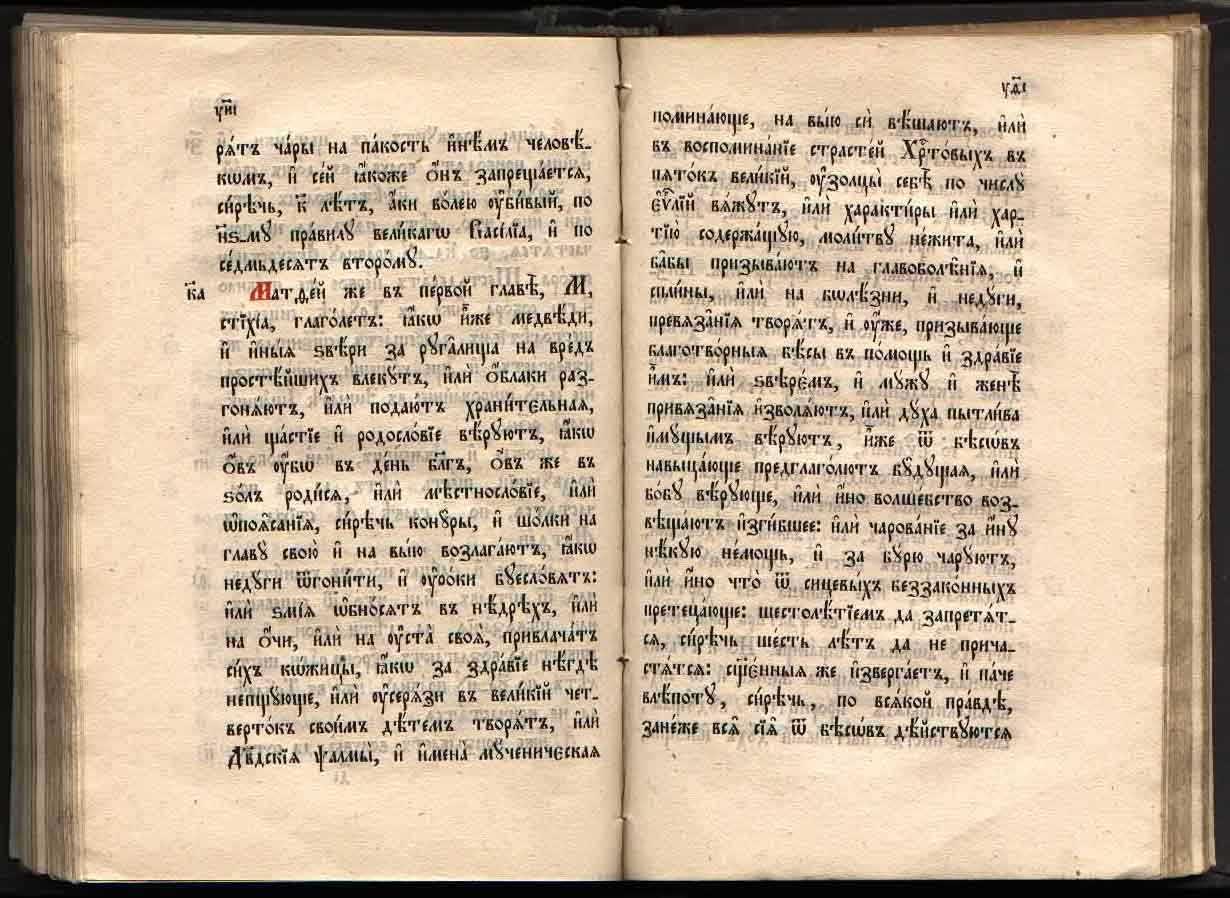 у҃иі
ря́тъ ча́ры на па́кость и҆нѣ́мъ человѣ́-
кѡмъ, и҆ се́й ꙗ҆́коже ѻ҆́нъ запреща́ется,
си́рѣчь, к҃ лѣ́тъ, а҆́ки во́лею оу҆би́вый, по
н҃ѕ-му пра́вилу вели́кагѡ Васі́лїа, и҆ по
се́дмьдесятъ второ́му.
к҃а Матѳе́й же въ пе́рвой главѣ̀, М,
стїхі́а, глаго́летъ: ꙗ҆́кѡ и҆̀же медвѣ́ди,
и҆ и҆ны́ѧ ѕвѣ́ри за руга́лища на вре́дъ
простѣ́йшихъ влеку́тъ, и҆лѝ ѻ҆́блаки раз-
гонѧ́ютъ, и҆лѝ подаю́тъ храни́тельнаѧ,
и҆лѝ ща́стїе и҆ родосло́вїе вѣ́руютъ, ꙗ҆́кѡ
ѻ҆́въ оу҆́бѡ въ де́нь бл҃гъ, ѻ҆́въ же въ
ѕо́лъ роди́сѧ, и҆лѝ мѣстносло́вїе, и҆лѝ
ѡ҆поѧ́санїѧ, си́рѣчь кону́ры, и҆ шо́лки на
главу̀ свою̀ и҆ на вы́ю возлага́ютъ, ꙗ҆́кѡ
неду́ги ѿгони́ти, и҆ оу҆ро́ки буесло́вѧтъ:
и҆лѝ ѕмі́ѧ ѡ҆бно́сѧтъ въ нѣ́дрѣхъ, и҆лѝ
на ѻ҆́чи, и҆лѝ на оу҆ста̀ своѧ̀, привлача́тъ
си́хъ кѡ́жицы, ꙗ҆́кѡ за здра́вїе нѣ́гдѣ
непщу́юще, и҆лѝ оу҆серѧ́зи въ вели́кїй чет-
верто́къ свои́мъ дѣ́темъ творѧ́тъ, и҆лѝ
Дв҃дскїѧ ѱалмы̀, и҆ и҆мена̀ му́ченическаѧ
у҃ѳі
помина́юще, на вы́ю сѝ вѣ́шаютъ, и҆лѝ
въ воспомина́нїе страсте́й Хрⷭ҇то́выхъ въ
пѧто́къ вели́кїй, оу҆золцы̀ себѣ̀ по числу̀
є҆ѵⷢ҇лїй вѧ́жутъ, и҆лѝ характи́ры и҆лѝ хар-
ті́ю содержа́щую, моли́тву не́жита, и҆лѝ
ба́бы призыва́ютъ на главоболѣ́нїѧ, и҆
спли́ны, и҆лѝ на бѡлѣ́зни, и҆ неду́ги,
превѧза́нїѧ творѧ́тъ, и҆ оу҆́же, призыва́юще
благотво́рныѧ бѣ́сы въ по́мощь и҆ здра́вїе
и҆̀мъ: и҆лѝ ѕвѣре́мъ, и҆ му́жу и҆ женѣ̀
привѧза́нїѧ и҆зволѧ́ютъ, и҆лѝ ду́ха пытли́ва
и҆му́щымъ вѣ́руютъ, и҆̀же ѿ бѣсѡ́въ
навыца́юще предглаго́лютъ бу́дущаѧ, и҆лѝ
бо́бу вѣ́рующе, и҆лѝ и҆́но волше́бство воз-
вѣща́ютъ и҆зги́бшее: и҆лѝ чарова́нїе за и҆́ну
нѣ́кую не́мощь, и҆ за бу́рю чару́ютъ,
и҆лѝ и҆́но что̀ ѿ сицевы́хъ беззако́нныхъ
претеща́юще: шестолѣ́тїемъ да запретѧ́т-
сѧ, си́рѣчь ше́сть лѣ́тъ да не прича-
стѧ́тсѧ: сщ҃е́нныѧ же и҆зверга́етъ, и҆ па́че
влѣпоту̀, си́рѣчь, по всѧ́кой пра́вдѣ,
зане́же всѧ̑ сїѧ̑ ѿ бѣсѡ́въ дѣ́йствуютсѧ